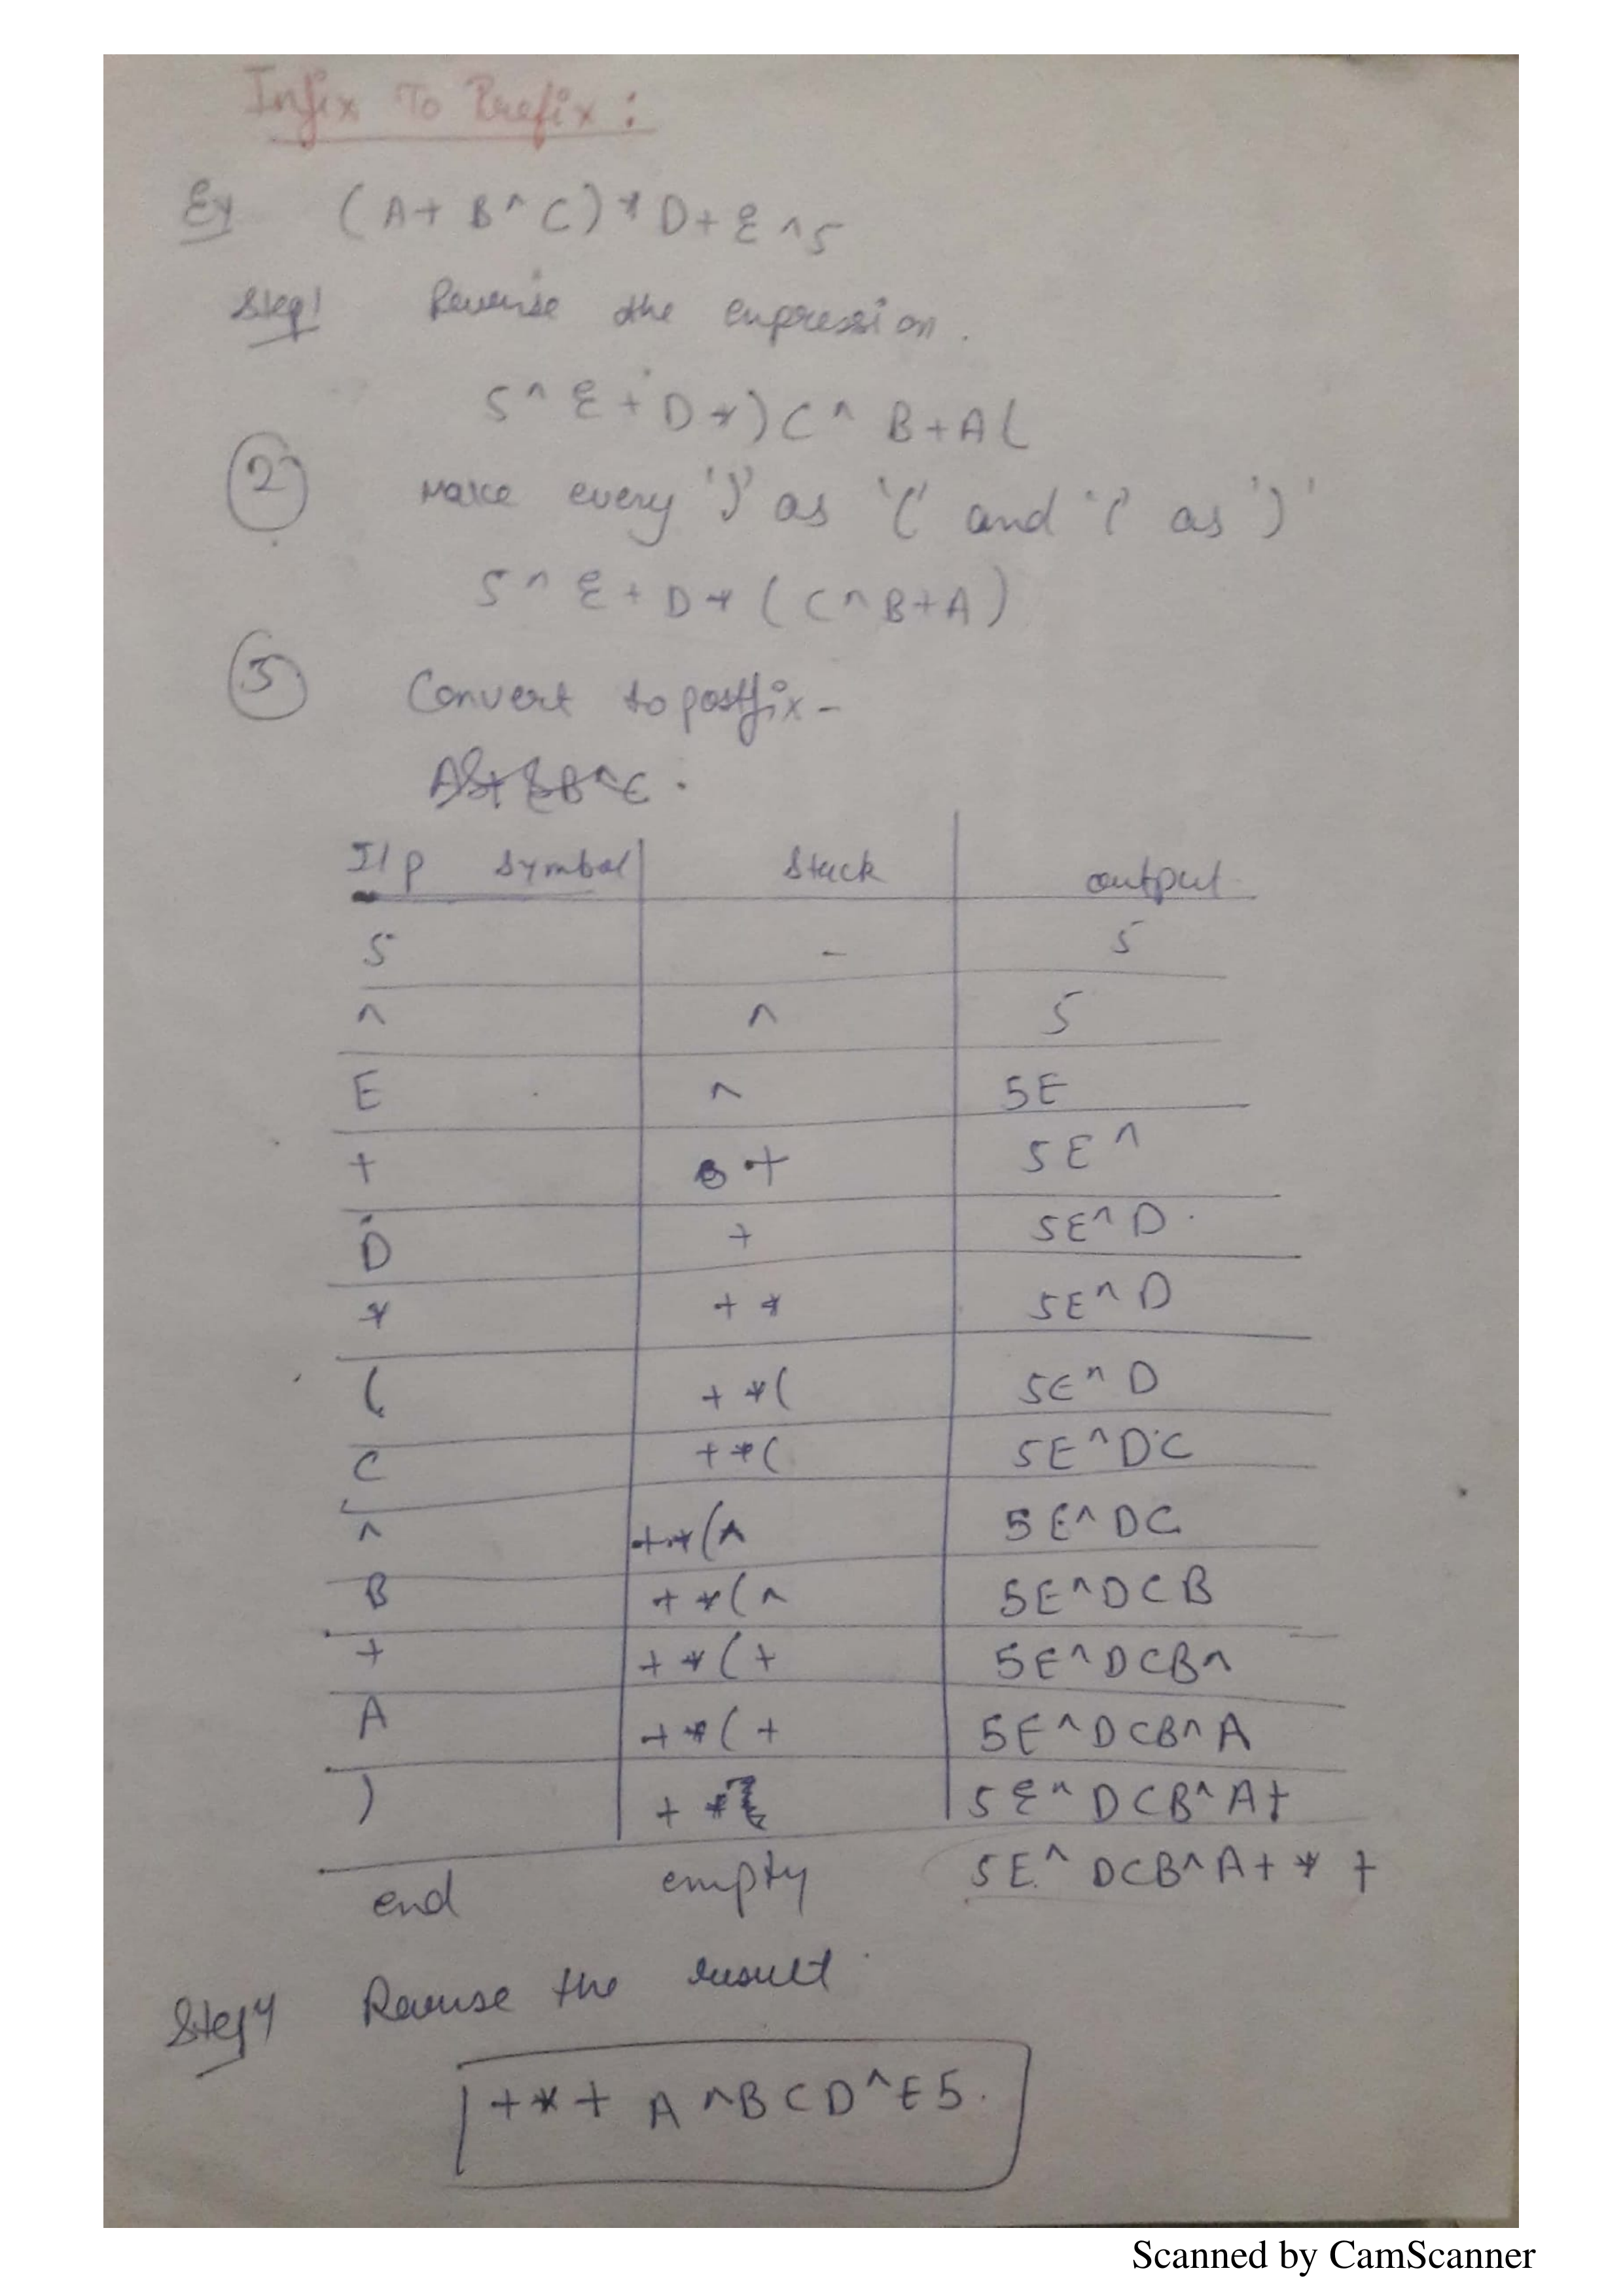 Infix To Prefix :
Ex (A+ B^C)*D+E^5
Step1 Reverse the expression.
5^E+D*)C^B+A(
2 Make every ')' as '(' and '(' as ')'
5^E+D*(C^B+A)
3 Convert to postfix -
I/p symbol Stack output
5 - 5
^ ^ 5
E ^ 5E
+ + 5E^
D + 5E^D
* +* 5E^D
( +*( 5E^D
C +*( 5E^DC
^ +*(^ 5E^DC
B +*(^ 5E^DCB
+ +*(+ 5E^DCB^
A +*(+ 5E^DCB^A
) +* 5E^DCB^A+
end empty 5E^DCB^A+*+
Step4 Reverse the result
+*+A^BCD^E5.
Scanned by CamScanner